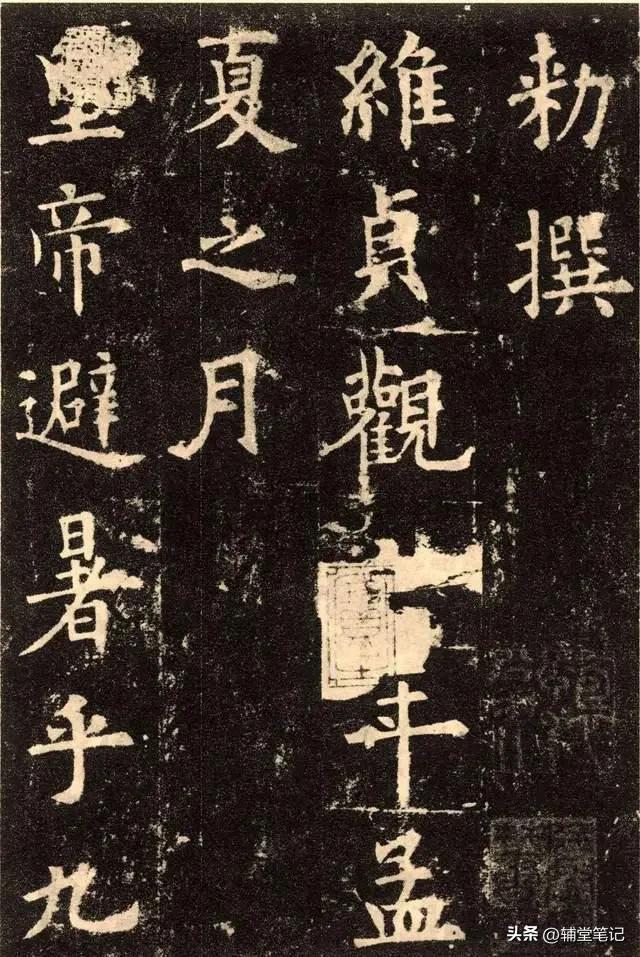 勑撰
維貞觀年孟
夏之月
皇帝避暑乎九
头条 @辅堂笔记